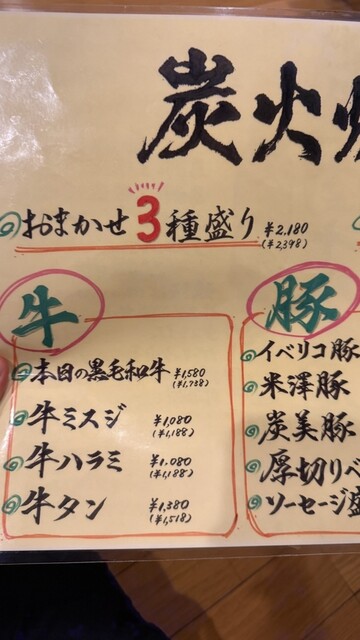 炭火
おまかせ3種盛り ¥2,180
(¥2,398)
牛
本日の黒毛和牛 ¥1,580
(¥1,738)
牛ミスジ ¥1,080
(¥1,188)
牛ハラミ ¥1,080
(¥1,188)
牛タン ¥1,380
(¥1,518)
豚
イベリコ豚
米澤豚
炭美豚
厚切りベ
ソーセージ盛